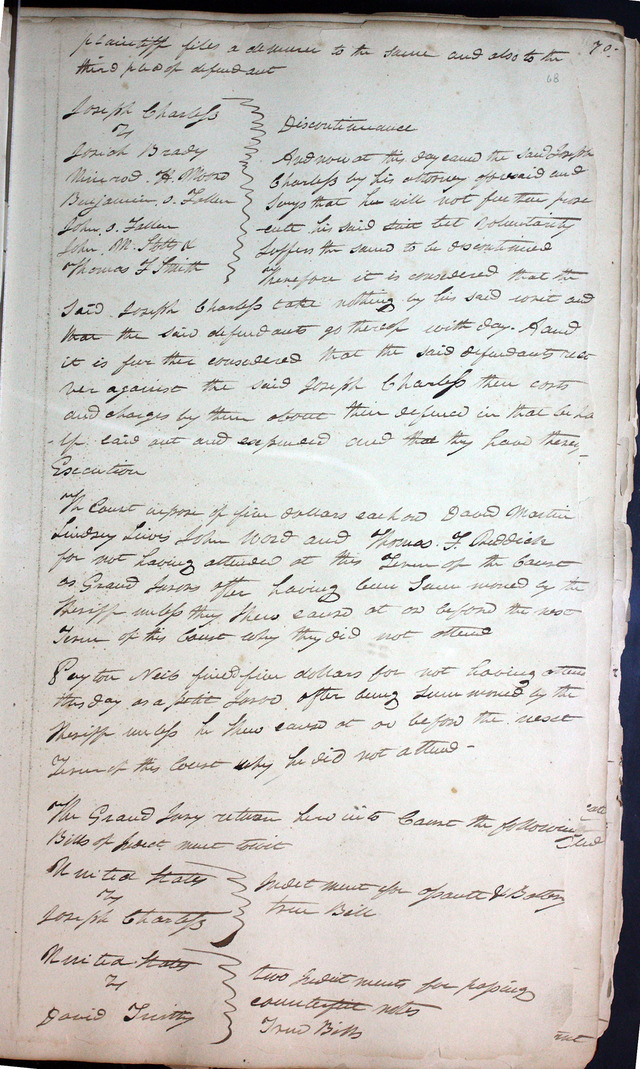 plaintiff files a demurer to the same and also to the
third plea of defendant
70.
68
Joseph Charless
vs
Josiah Brady
Nimrod H. Moore
Benjamin O. Fallen
John O. Fallen
John M. Stotts &
Thomas F Smith
Discontinuance
And now at this day came the said Joseph
Charless by his attorney aforesaid and
says that he will not further prose
cute his said suit but Voluntarily
Suffers the same to be discontinued
Therefore it is considered that the
Said Joseph Charless take nothing by his said writ and
that the said defendants go thereof with day. And
it is further considered that the said defendants reco
ver against the said Joseph Charless their costs
and charges by them about their defence in that beha
lf laid out and expended and that they have thereof
Execution
The Court impose of five dollars each on David Martin
Lindsey John Word and Thomas F. Reddick
for not having attended at this Term of the Court
as Grand Jurors after having been Summoned by the
Sheriff unless they Shew cause at or before the next
Term of this Court why they did not attend
Peyton fined five dollars for not having attend
this day as a petit Juror after being Summoned by the
Sheriff unless he Shew cause at or before the next
Term of this Court why he did not attend -
The Grand Jury return here into Court the following
Bills of Indictment towit
United States
vs
Joseph Charless
Indictment for assault & Battery
true Bill
United States
vs
David
two Indictments for passing
counterfeit notes
True Bills